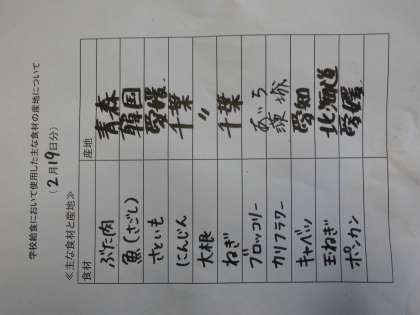 学校給食において使用した主な食材の産地について
(2月19日分)
≪主な食材と産地≫
食材 産地
ぶた肉 青森
魚(さごし) 韓国
さといも 愛媛
にんじん 千葉
大根 〃
ねぎ 千葉
ブロッコリー あいち
カリフラワー 茨城
キャベツ 愛知
玉ねぎ 北海道
ポンカン 愛媛